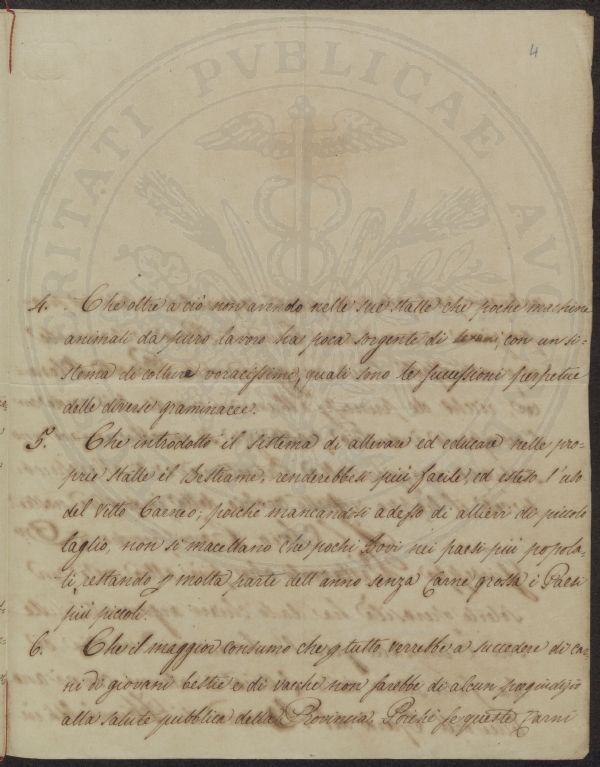 4
4. Che oltre a ciò non avendo nelle sue stalle che poche macchine
animati da puro lavoro ha poca sorgente di con un si-
stema di colture voracissime, quali sono le successioni perpetue
delle diverse graminacee.
5. Che introdotto il sistema di allevare ed educare nelle pro-
prie stalle il Bestiame, renderebbesi più facile, ed esteso l'uso
del vitto Carneo; poiche mancandosi adesso di allievi di piccolo
taglio, non si macellano che pochi Bovi nei paesi più popola-
ti, restando p molta parte dell'anno senza Carne grossa i Paesi
più piccoli.
6. Che il maggior consumo che p tutto verrebbe a succedere di ca-
ni di giovani bestie e di vacche non sarebbe di alcun pregiudizio
alla salute pubblica della Provincia. Poiche se queste Carni